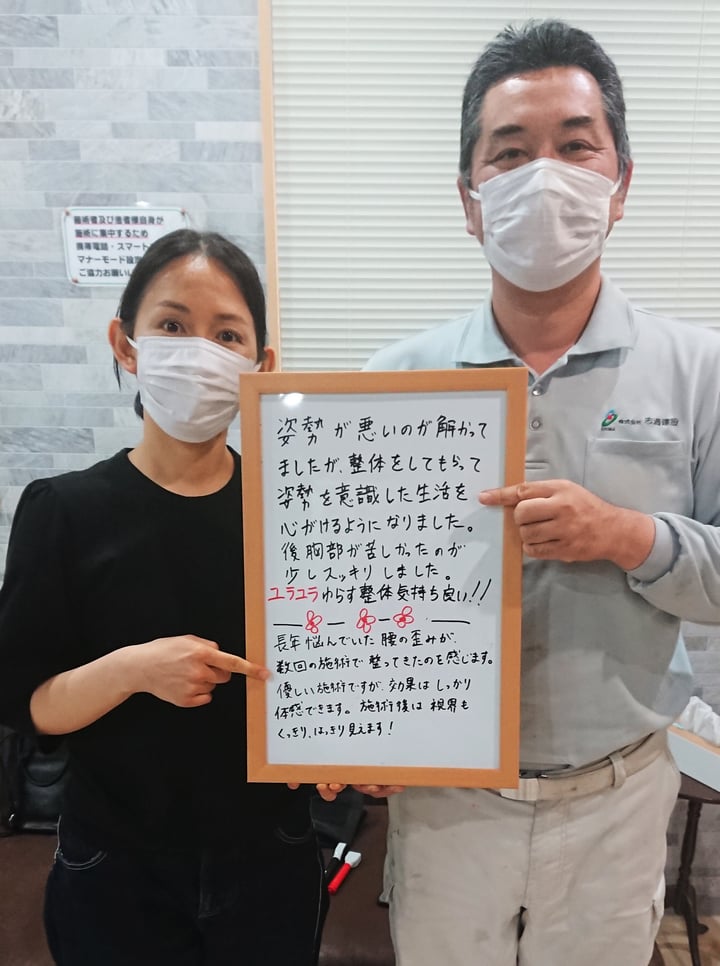 施術者及び患者様自身が
施術に集中するため
携帯電話・スマート
マナーモード設定
ご協力お願いし
株式会社 志満建設
姿勢が悪いのが解かって
ましたが、整体をしてもらって
姿勢を意識した生活を
心がけるようになりました。
後胸部が苦しかったのが
少しスッキリしました。
ユラユラゆらす整体気持ち良い!!
長年悩んでいた腰の歪みが、
数回の施術で整ってきたのを感じます。
優しい施術ですが、効果はしっかり
体感できます。施術後は視界も
くっきり、はっきり見えます!